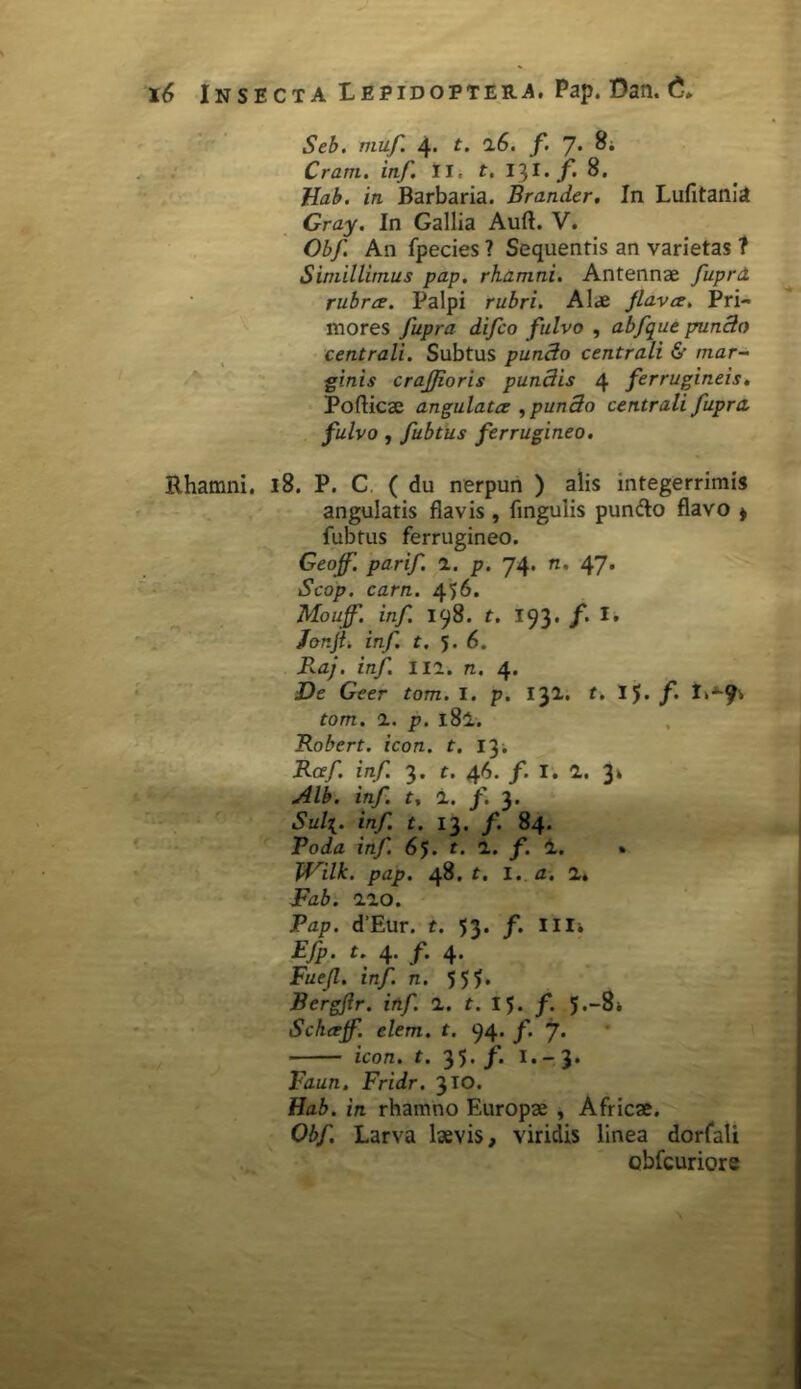 16 INSECTA LEPIDOPTERA. Pap. Dan. C.
Seb. muſ. 4. t. 26. f. 7. 8.
Cram. inſ. 11. t. 131. f. 8.
Hab. in Barbaria. Brander. In Luſitania
Gray. In Gallia Auſt. V.
Obſ. An ſpecies? Sequentis an varietas?
Simillimus pap. rhamni. Antennæ ſuprà
rubræ. Palpi rubri. Alæ flavæ. Pri-
mores ſupra diſco fulvo , abſque puncto
centrali. Subtus puncto centrali & mar-
ginis craſſioris punctis 4 ferrugineis.
Poſticæ angulatæ , puncto centrali ſupra
fulvo , ſubtus ferrugineo.
Rhamni. 18. P. C. ( du nerpun ) alis integerrimis
angulatis flavis , ſingulis puncto flavo ,
ſubtus ferrugineo.
Geoff. pariſ. 2. p. 74. n. 47.
Scop. carn. 456.
Mouff. inſ. 198. t. 193. f. 1.
Jonſt. inſ. t. 5. 6.
Raj. inſ. 112. n. 4.
De Geer tom. 1. p. 132. t. 15. f. 1.-9.
tom. 2. p. 182.
Robert. icon. t. 13.
Rœſ. inſ. 3. t. 46. f. 1. 2. 3.
Alb. inſ. t. 2. f. 3.
Sulz. inſ. t. 13. f. 84.
Poda inſ. 65. t. 2. f. 2.
Wilk. pap. 48. t. 1. a. 2.
Fab. 220.
Pap. d'Eur. t. 53. f. 111.
Eſp. t. 4. f. 4.
Fueſl. inſ. n. 555.
Bergſtr. inſ. 2. t. 15. f. 5.-8.
Schæff. elem. t. 94. f. 7.
—— icon. t. 35. f. 1.-3.
Faun. Fridr. 310.
Hab. in rhamno Europæ , Africæ.
Obſ. Larva lævis, viridis linea dorſali
obſcuriore